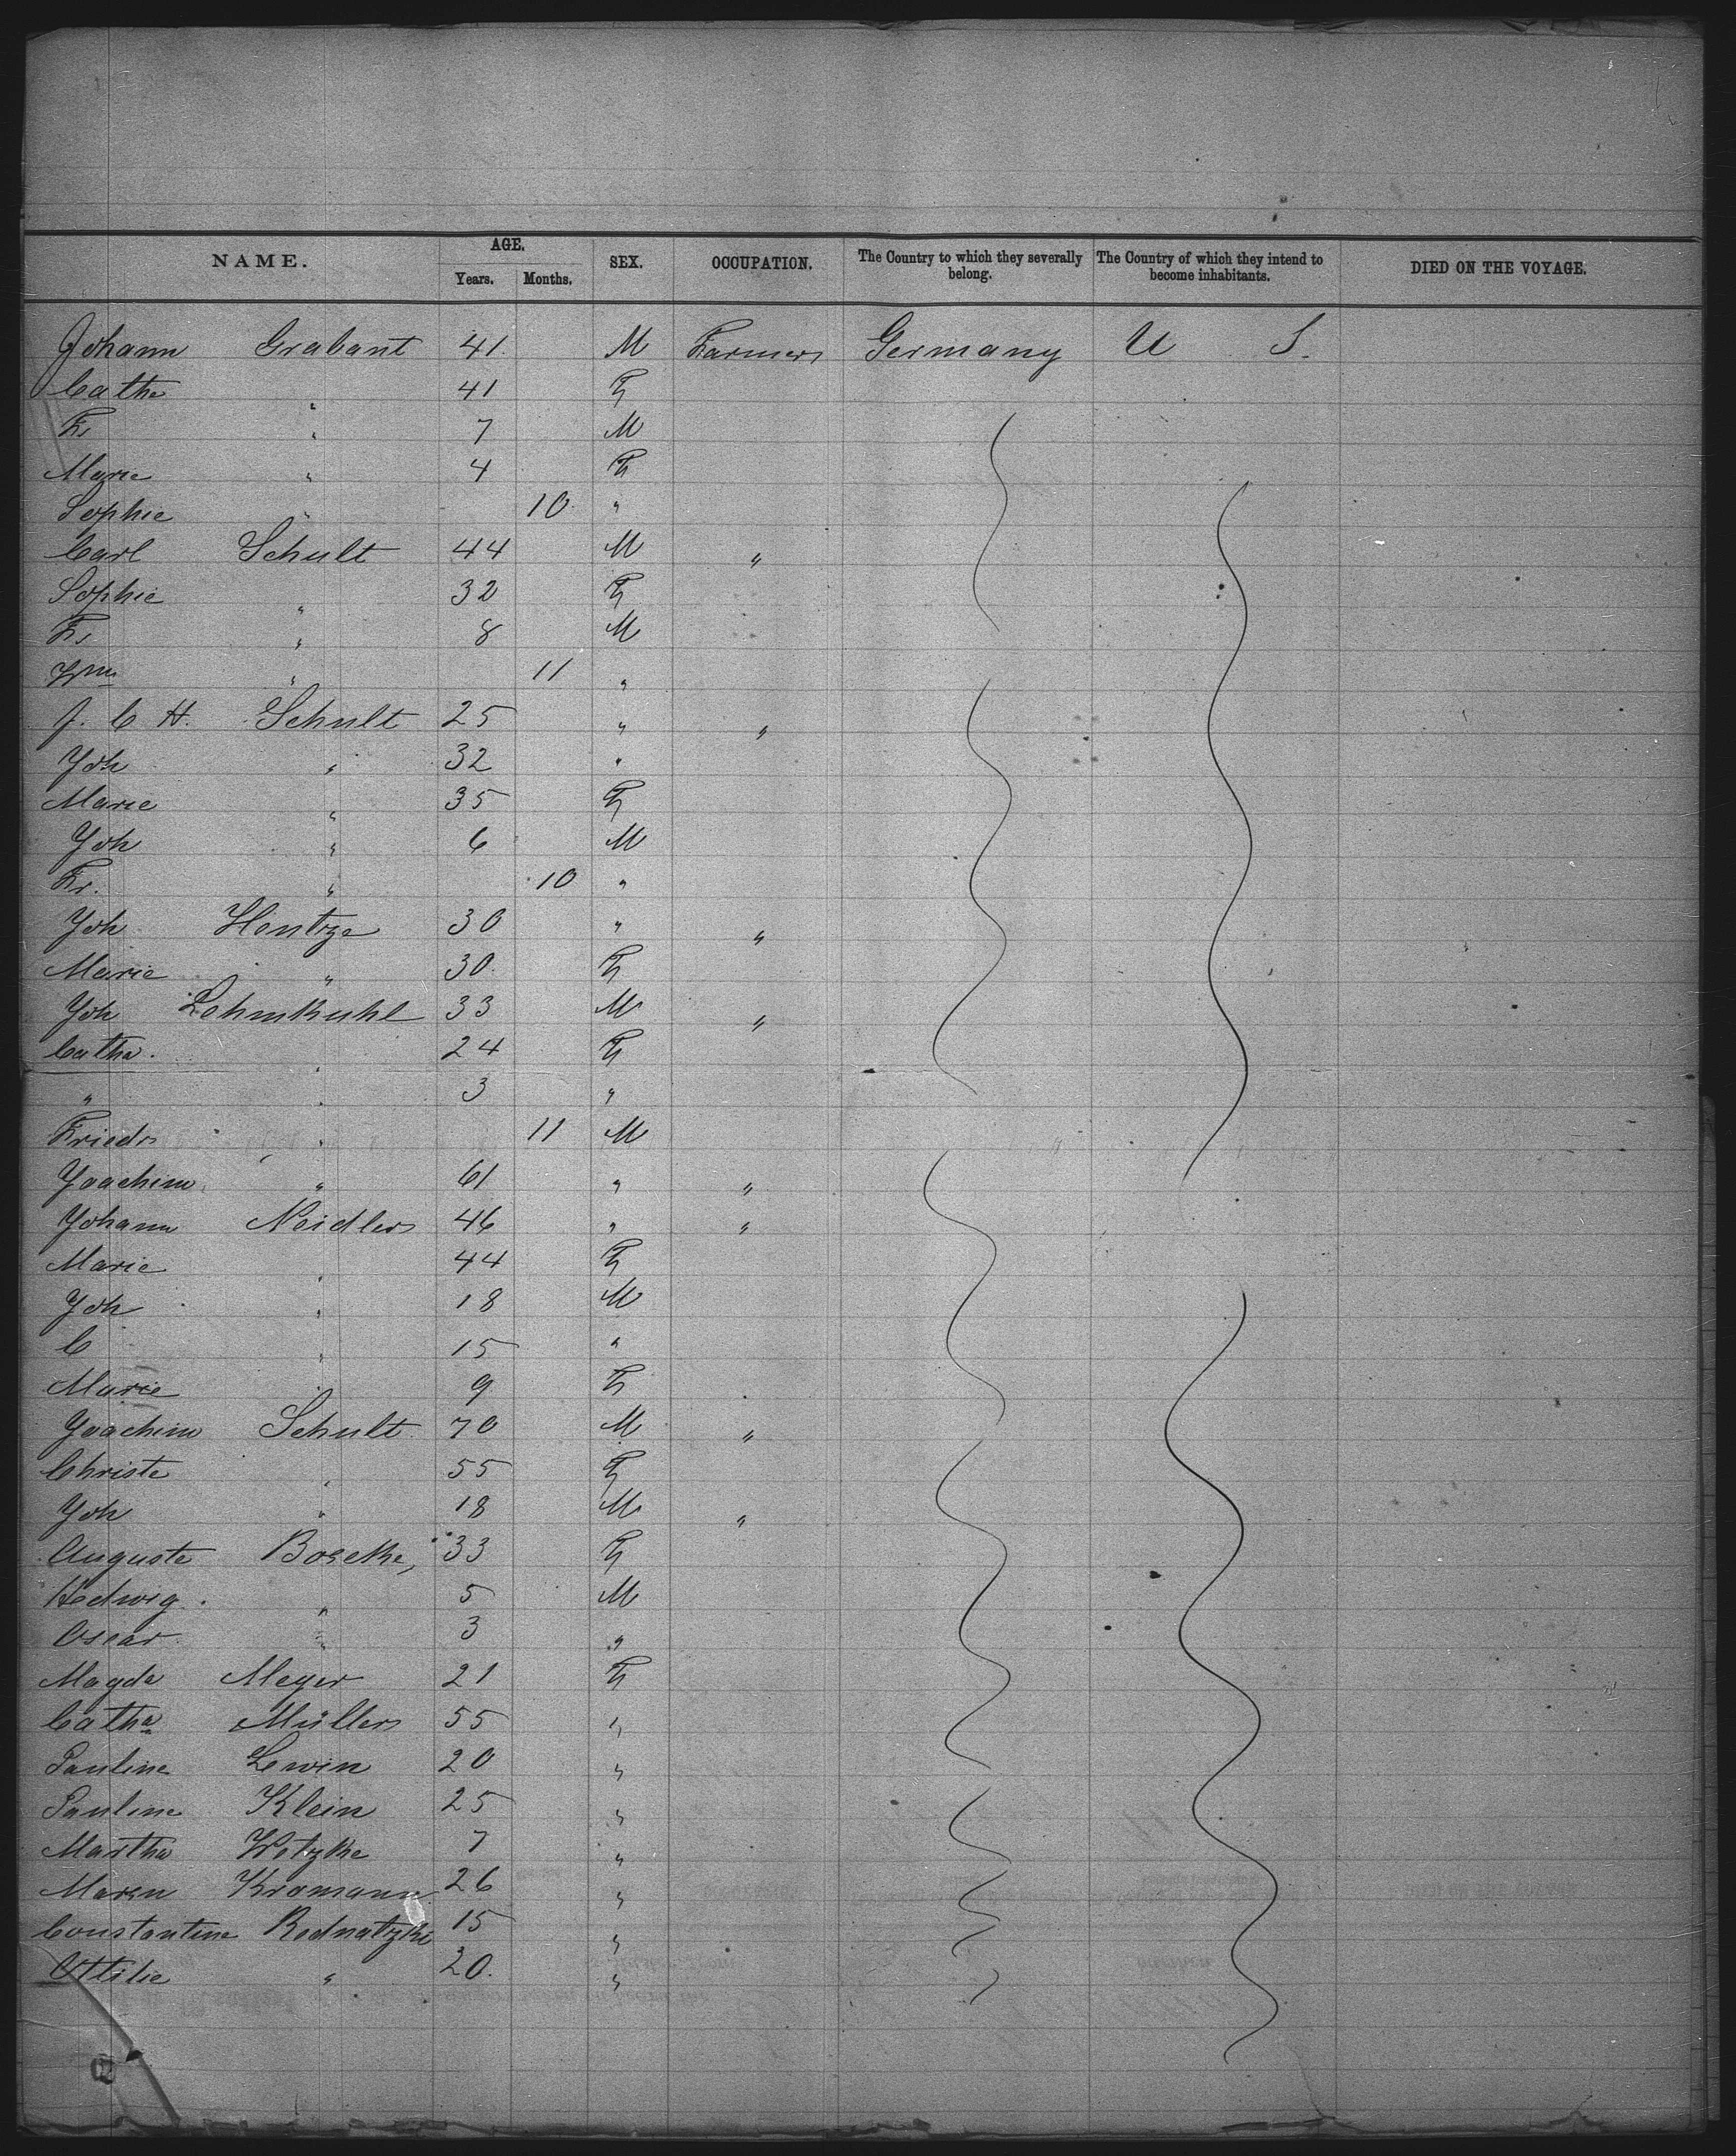 NAME. AGE. Years. Months. SEX. OCCUPATION. The Country to which they severally belong. The Country of which they intend to become inhabitants. DIED ON THE VOYAGE.
Johann Grabant 41 M Farmers Germany U S.
Catha " 41 F
Fr " 7 M
Marie " 4 F
Sophie " 10 "
Carl Schult 44 M "
Sophie " 32 F
Fr " 8 M
Wm " 11 "
J. C H. Schult 25 " "
Joh " 32 "
Marie " 35 F
Joh " 6 M
Fr. " 10 "
Joh Hentze 30 " "
Marie " 30 F
Joh Lehmkuhl 33 M "
Catha. " 24 F
" " 3 "
Friedr " 11 M
Joachim " 61 " "
Johann Neidler 46 " "
Marie " 44 F
Joh " 18 M
C " 15 "
Marie " 9 F
Joachim Schult 70 M "
Christe " 55 F
Joh " 18 M "
Auguste 33 F
Hedwig " 5 M
Oscar " 3 "
Magda Meyer 21 F
Catha Müller 55 "
Pauline Lewin 20 "
Pauline Klein 25 "
Martha Wetzke 7 "
Maren Kromann 26 "
Constantine Rednatzki 15 "
Ottilie " 20. "